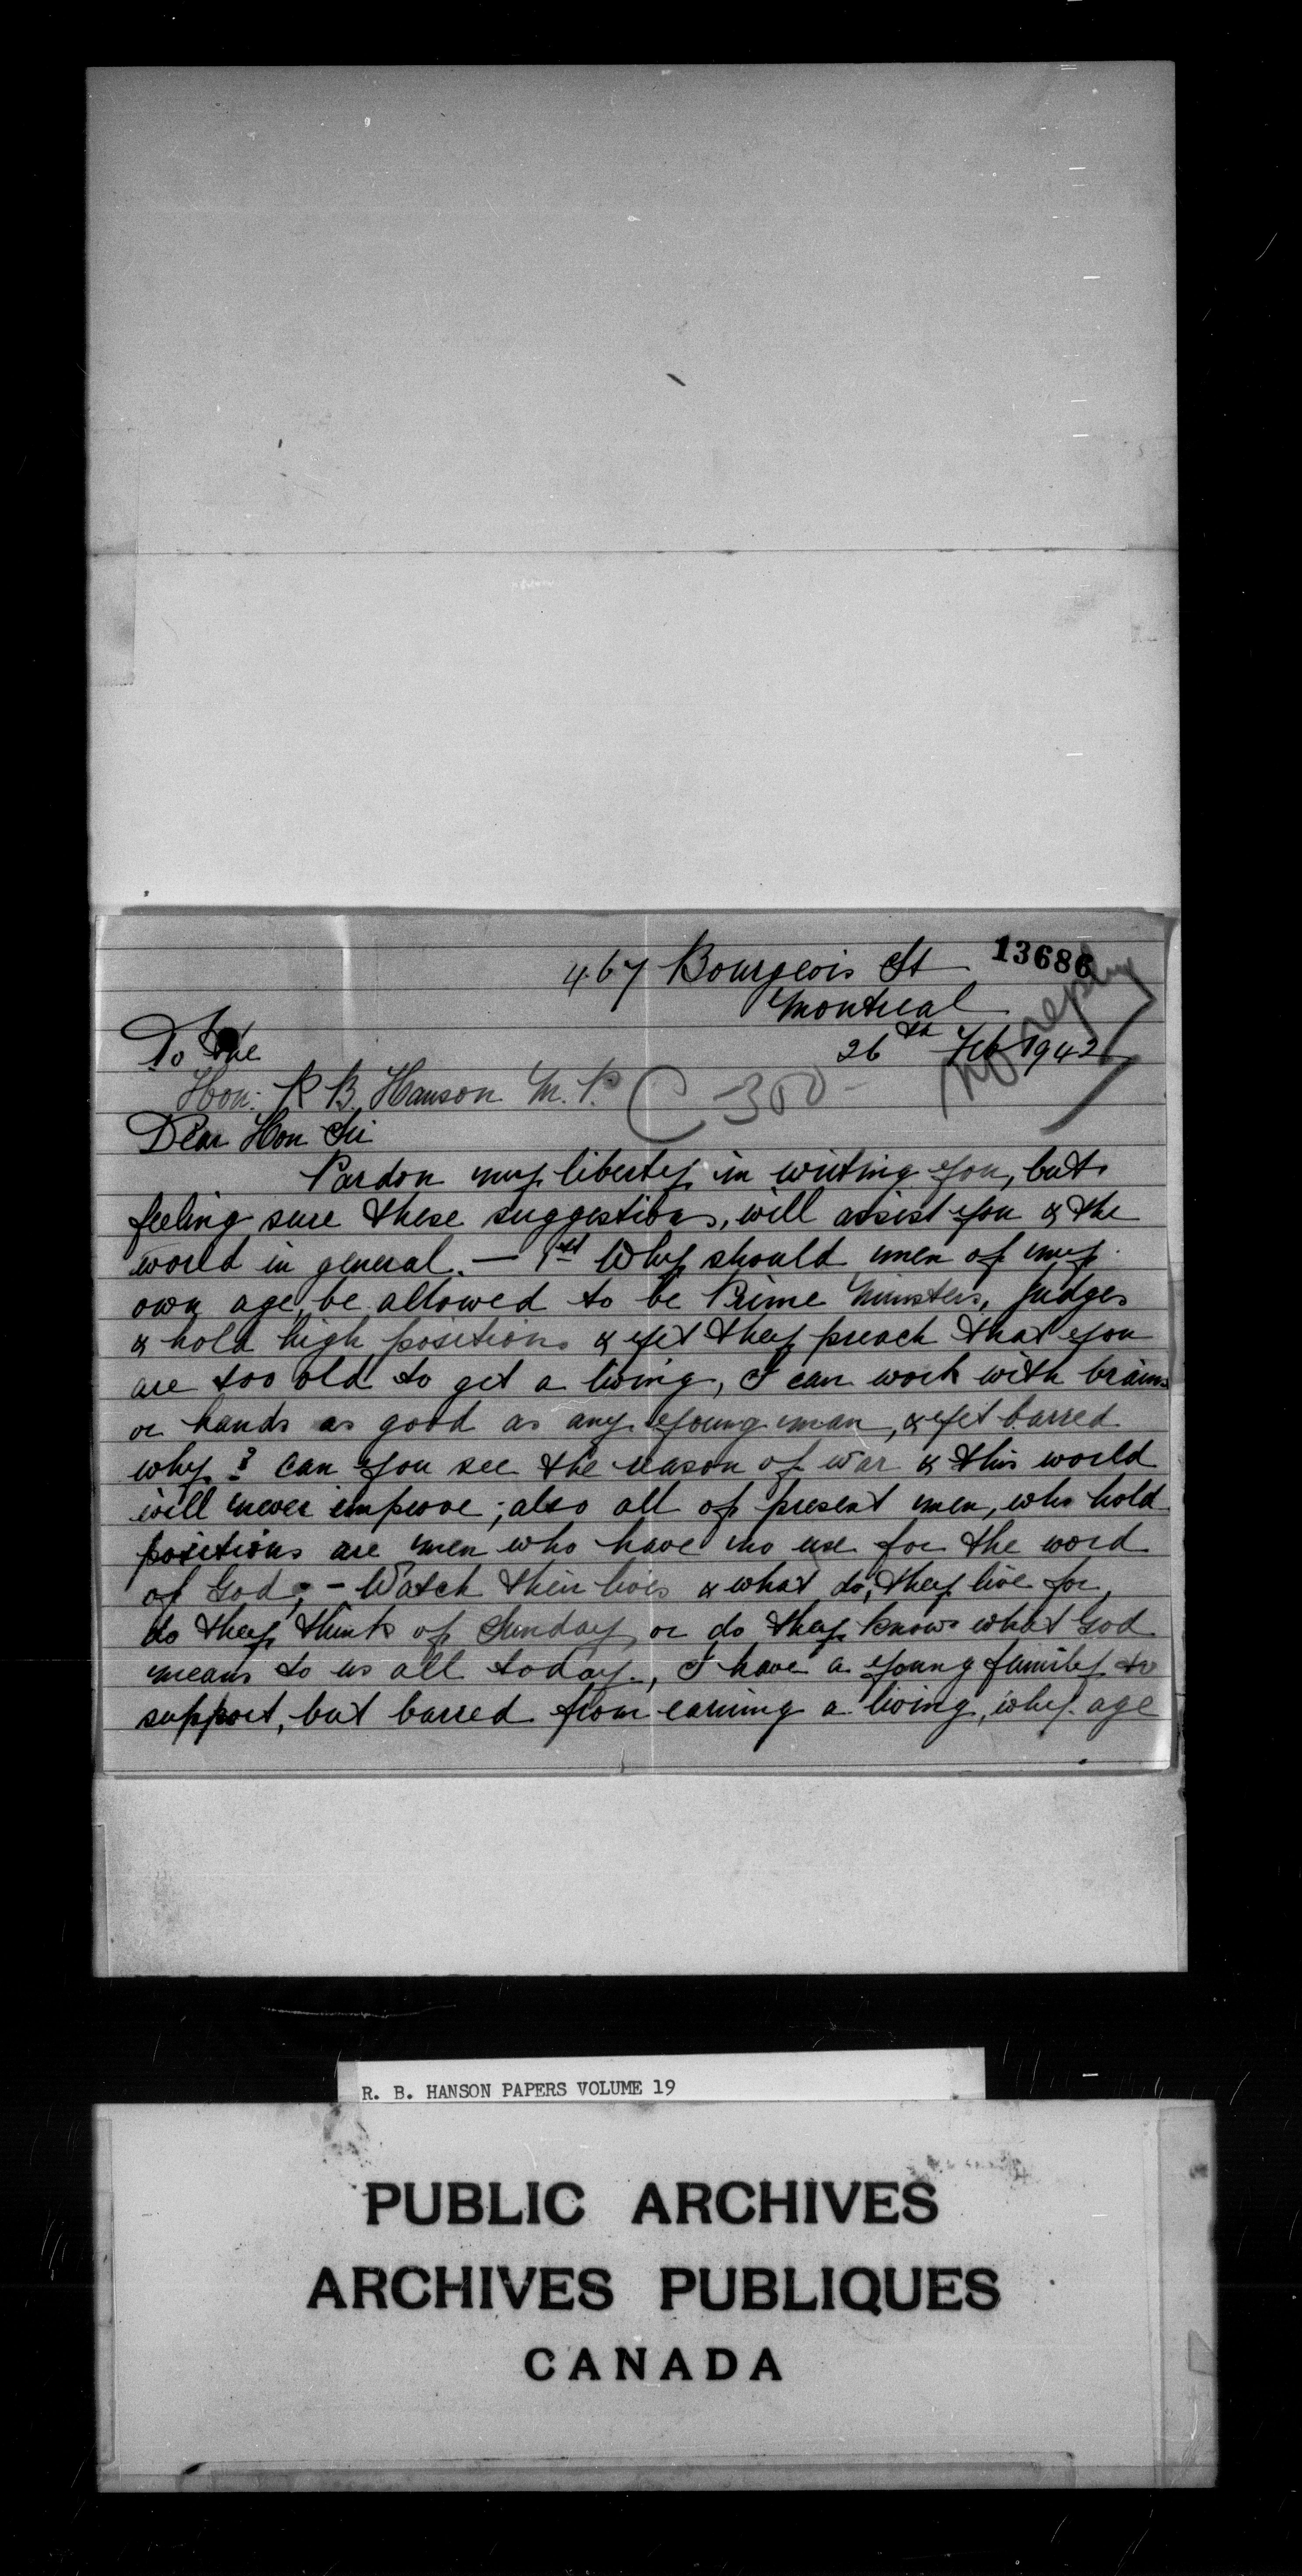 467 Bourgeois St
13686
Montreal
no reply
26th Feb 1942
To The
Hon: R B. Hanson M.P.
C-300-
Dear Hon Sir
Pardon my liberty in writing you, but
feeling sure these suggestions, will assist you & the
world in general. — 1st Why should men of my
own age, be allowed to be Prime Ministers, Judges
& hold high positions & yet they preach that you
are too old to get a living, I can work with brains
or hands as good as any young man, & yet barred
why? Can you see the reason of war & this world
will never improve; also all of present men, who hold
positions are men who have no use for the word
of God; - Watch their lives & what do, they live for,
do they think of Sunday, or do they know what God
means to us all today., I have a young family to
support, but barred from earning a living, why. age
R. B. HANSON PAPERS VOLUME 19
PUBLIC ARCHIVES
ARCHIVES PUBLIQUES
CANADA